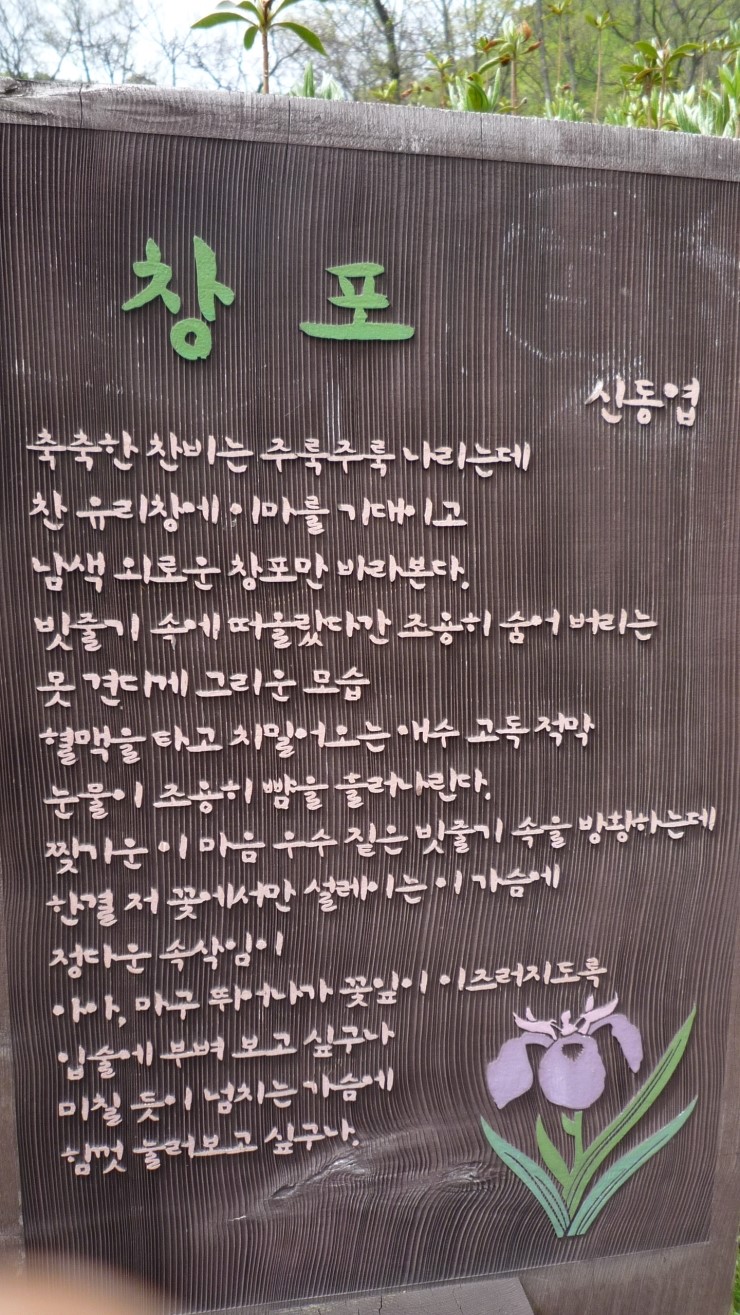 창포
신동엽
축축한 찬비는 주룩주룩 나리는데
찬 유리창에 이마를 기대이고
남색 외로운 창포만 바라본다.
빗줄기 속에 떠올랐다간 조용히 숨어 버리는
못 견디게 그리운 모습
혈맥을 타고 치밀어오는 애수 고독 적막
눈물이 조용히 뺨을 흘러나린다.
찢기운 이 마음 우수 짙은 빗줄기 속을 방황하는데
한결 저 꽃에서만 설레이는 이 가슴에
정다운 속삭임이
아아, 마구 뛰어나가 꽃잎이 이즈러지도록
입술에 부벼 보고 싶구나
미칠 듯이 넘치는 가슴에
힘껏 눌러보고 싶구나.